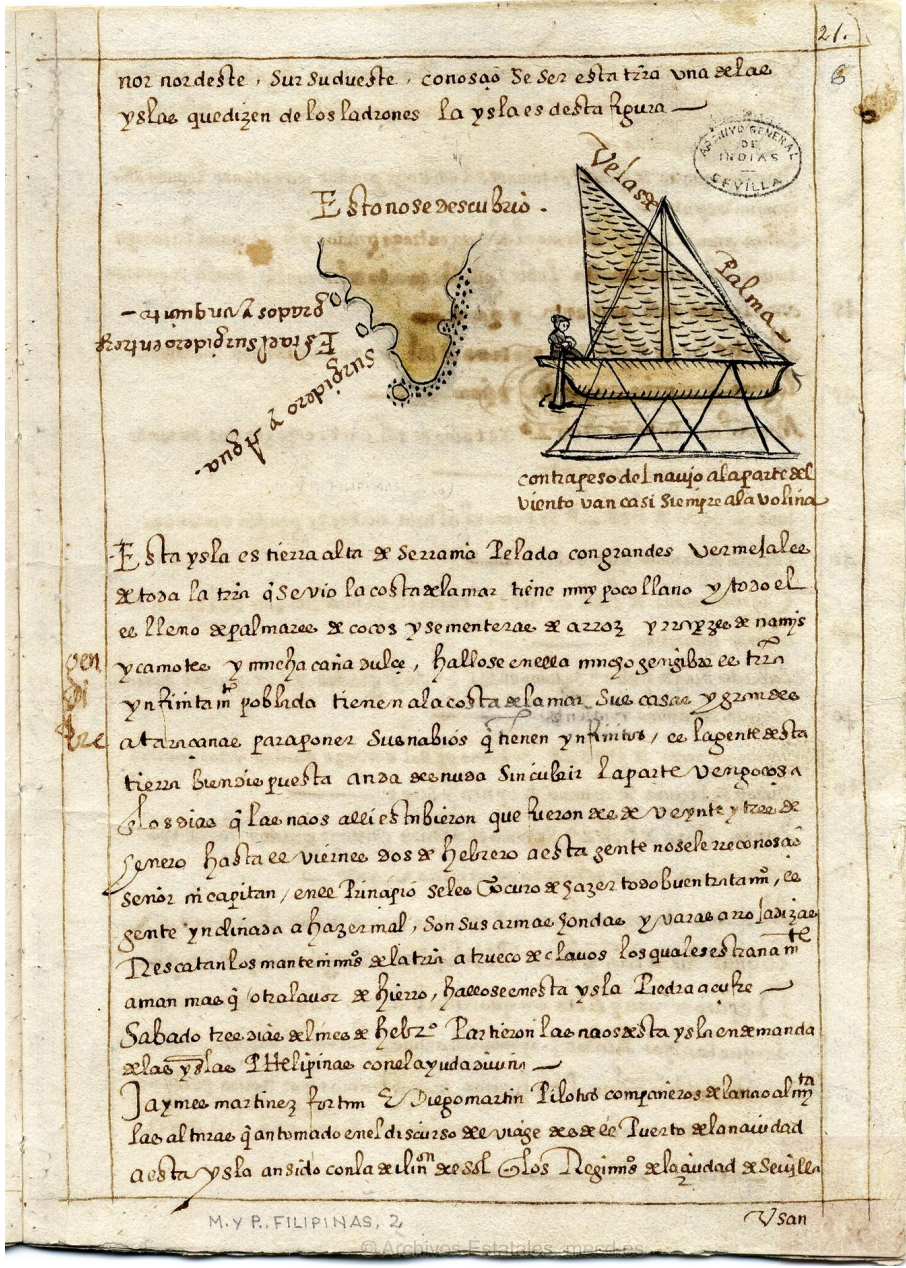 21.
6
nor nordeste, sur sudueste, conosçio se ser esta trra vna de las
yslas que dizen de los ladrones la ysla es desta figura
ARCHIVO GENERAL
DE
INDIAS
SEVILLA
Velas de
Palma
Esto no se descubrio.
Esta el surgidero en trece
grados y vn quarto
Surgidero y Agua.
contrapeso del nauio a la parte del
viento van casi siempre a la volina
Esta ysla es tierra alta de serrania Pelado con grandes vermejales
de toda la trra q se vio la costa de la mar tiene muy poco llano y todo el
es lleno de palmares de cocos y sementeras de arroz y rrayzes de namis
y camotes y mucha caña dulçe, hallose en ella mucho gengibre es trra
gen
gi
bre
ynfinitamte poblada tienen a la costa de la mar sus casas y grandes
ataraçanas para poner sus nabios q tienen ynfinitos, es la gente desta
tierra bien dispuesta anda desnuda sin cubrir la parte vergoçosa
Los dias q las naos alli estubieron que fueron desde veynte y tres de
henero hasta el viernes dos de hebrero a esta gente no se le rreconosçio
señor ni capitan, en el Prinçipio se les procuro de hazer todo buen tratamio, es
gente ynclinada a hazer mal, son sus armas hondas y varas arrojadizas
Rescatan los mantenimos de la trra a trueco de clavos los quales estranamte
aman mas q otra lauor de hierro, hallose en esta ysla Piedra açufre
Sabado tres dias del mes de hebro Partieron las naos desta ysla en demanda
de las yslas PHelipinas con el ayuda diuina
Jaymes martinez fortun E Diego martin Pilotos compañeros de la nao almta
las alturas q an tomado en el discurso del viage desde el Puerto de la nauidad
a esta ysla an sido con la declinon del sol E los Regimos de la çiudad de Seuilla
Vsan
M. Y P., FILIPINAS, 2
© Archivos Estatales, mecd.es